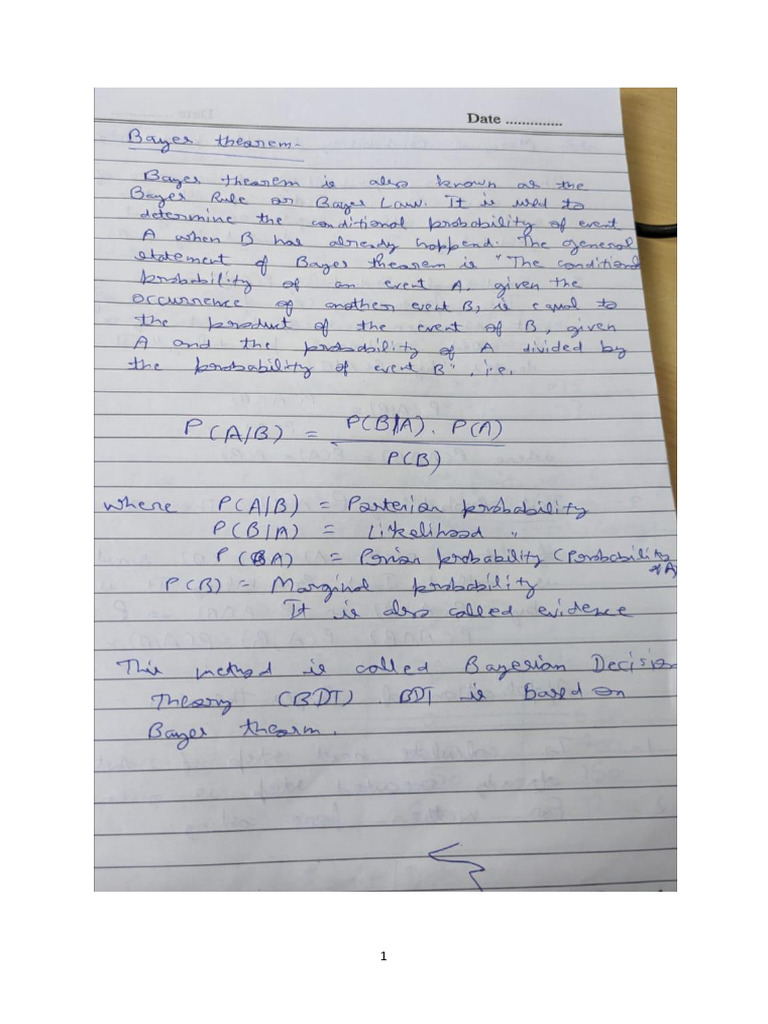 Date ..............
Bayes theorem-
Bayes theorem is also known as the
Bayes Rule or Bayes Law. It is used to
determine the conditional probability of event
A when B has already happend. The general
statement of Bayes theorem is "The conditional
probability of an event A, given the
occurrence of another event B, is equal to
the product of the event of B, given
A and the probability of A divided by
the probability of event B", i.e.
P(A/B) = P(B/A). P(A)
P(B)
where P(A/B) = Posterior probability
P(B/A) = Likelihood "
P(A) = Prior probability (Probability
of A)
P(B) = Marginal probability
It is also called evidence
This method is called Bayesian Decision
Theory (BDT). BDT is based on
Bayes theorm.
1